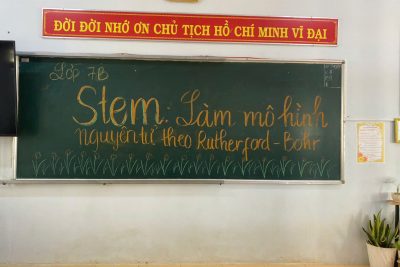 ĐỜI ĐỜI NHỚ ƠN CHỦ TỊCH HỒ CHÍ MINH VĨ ĐẠI
Lớp 7B
Stem: Làm mô hình
nguyên tử theo Rutherford - Bohr